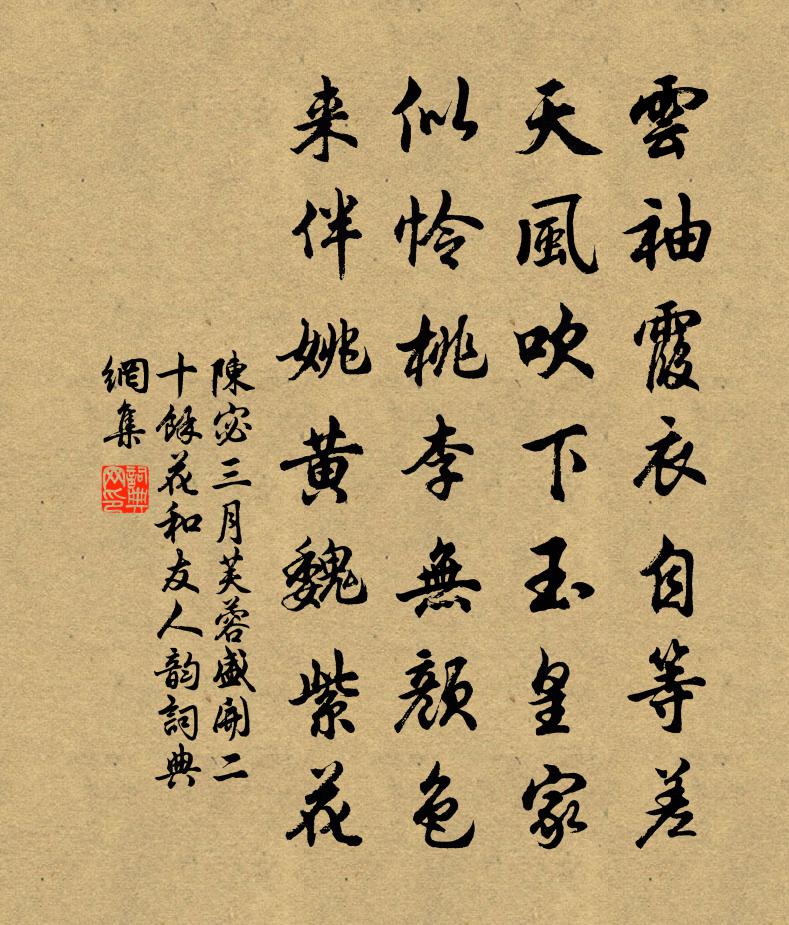 雲袖霞衣自等差
天風吹下玉皇家
似怜桃李無顏色
来伴姚黄魏紫花
陳宓三月芙蓉盛開二
十餘花和友人韵詞典
網集
詞典
网印